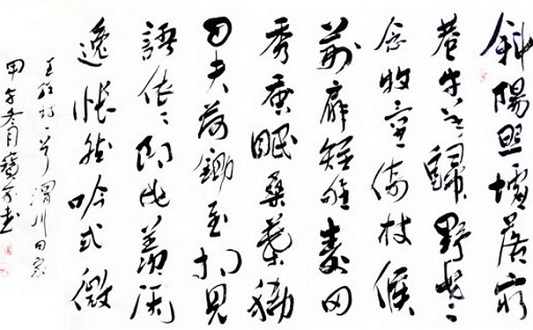 斜陽照墟落窮
巷牛羊歸野老
念牧童倚杖候
荊扉雉雊麥苗
秀蚕眠桑葉稀
田夫荷鋤至相見
語依〻即此羨閑
逸悵然吟式微
王維詩一首渭川田家
甲午冬月书